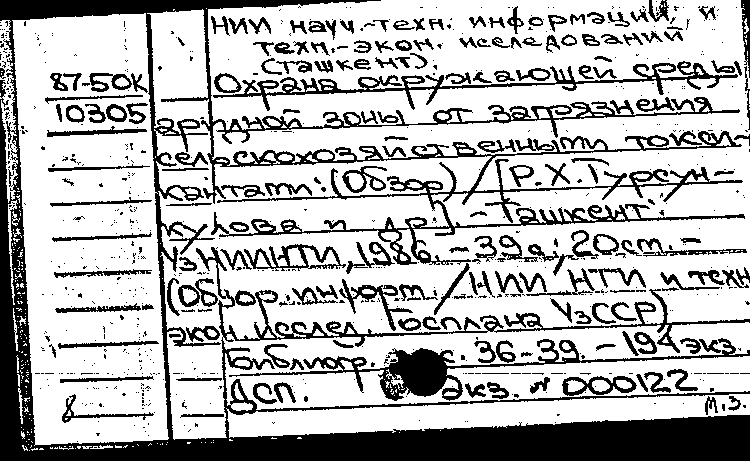 НИИ науч.-техн. информации и
техн.-экон. исследований
(Ташкент).
87-50к Охрана окружающей среды
10305 аридной зоны от загрязнения
сельскохозяйственными токси-
кантами: (Обзор) / [Р.Х.Турсун-
кулова и др.]. - Ташкент:
УзНИИНТИ, 1986. - 39 с.; 20 см. -
(Обзор. информ. / НИИ НТИ и техн
экон. исслед. Госплана УзССР)
Библиогр. с. 36-39. - 194 экз.
ДСП. Экз. № 000122.
8 М.З.